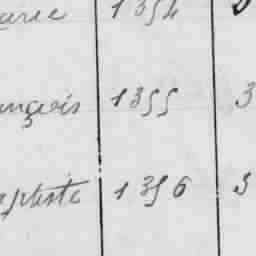 arie 1354
ançois 1355 3
aptiste 1356 3